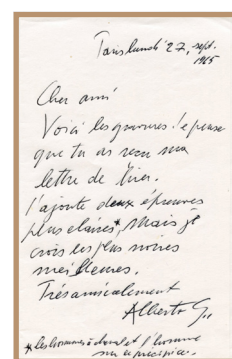 Paris lundi 27, sept.
1965
Cher ami
Voici les gravures. Je pense
que tu as reçu ma
lettre de hier.
J'ajoute deux épreuves
plus claires*, mais je
crois les plus noires
meilleures.
Très amicalement
Alberto G.
*les hommes à cheval et l'homme